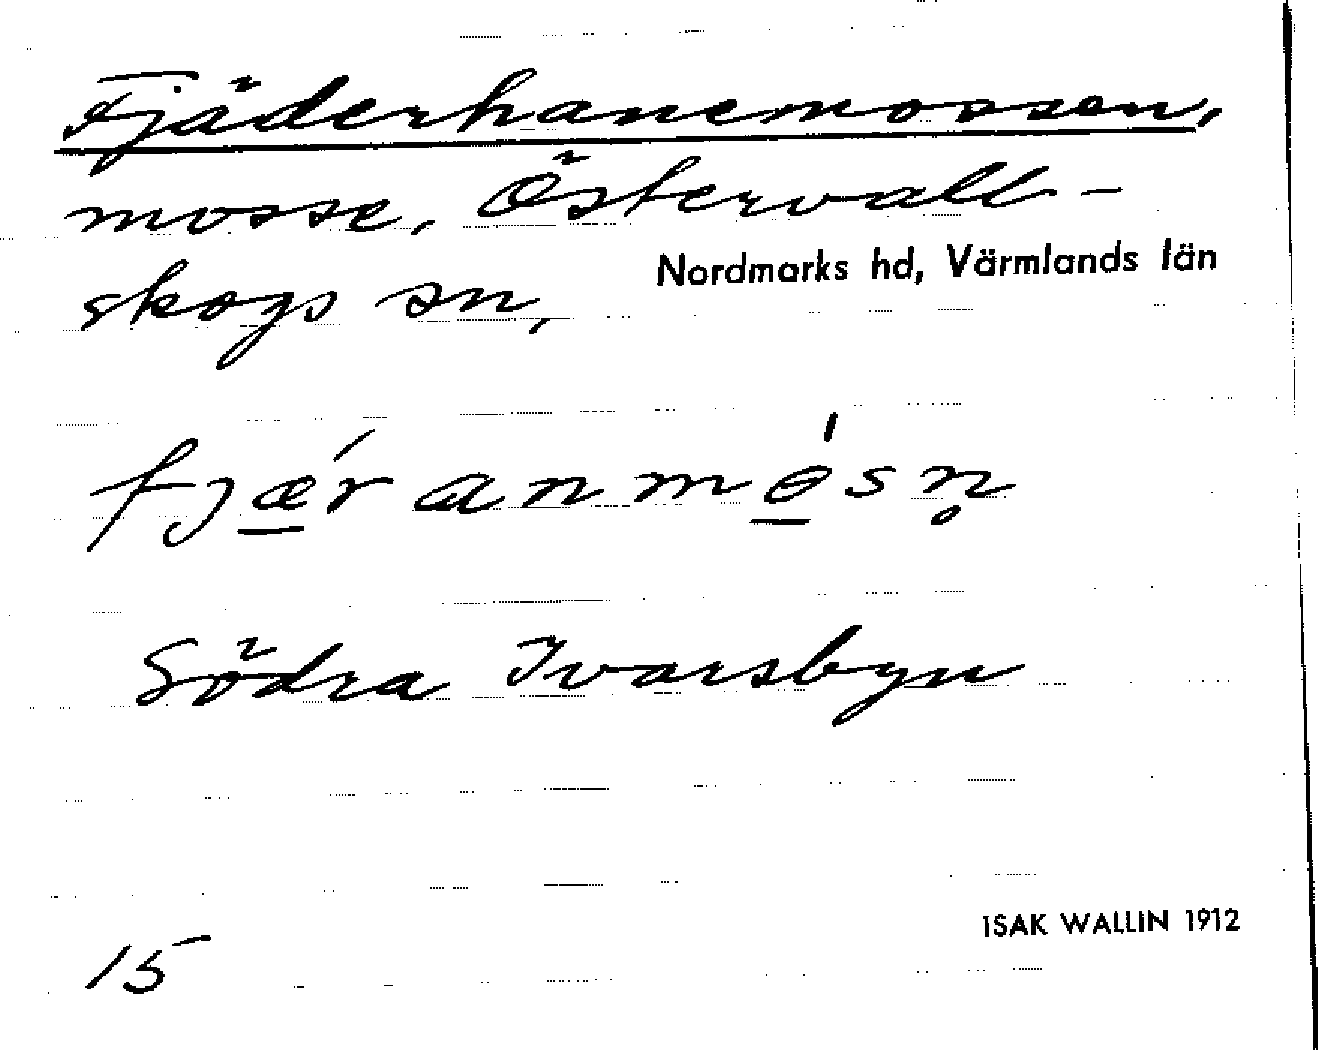 Fjäderhanemossen,
mosse, Östervall-
skogs sn,
Nordmarks hd, Värmlands län
fjǽ̲ranmǿ̲sn̥
Södra Ivarsbyn
15
ISAK WALLIN 1912